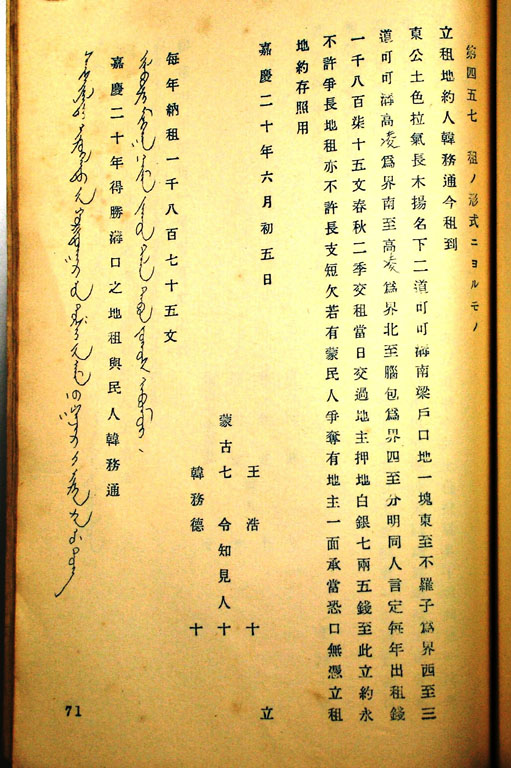 第四五七　租ノ形式ニヨルモノ
立租地約人韓務通今租到
東公土色拉氣長木揚名下二道可可溝南梁戶口地一塊東至不羅子爲界西至三
道可可溝高凌爲界南至高凌爲界北至腦包爲界四至分明同人言定每年出租錢
一千八百柒十五文春秋二季交租當日交過地主押地白銀七兩五錢至此立約永
不許爭長地租亦不許長支短欠若有蒙民人爭奪有地主一面承當恐口無憑立租
地約存照用
嘉慶二十年六月初五日　立
王浩　十
蒙古七　令知見人　十
韓務德　十
每年納租一千八百七十五文
嘉慶二十年得勝溝口之地租與民人韓務通
71